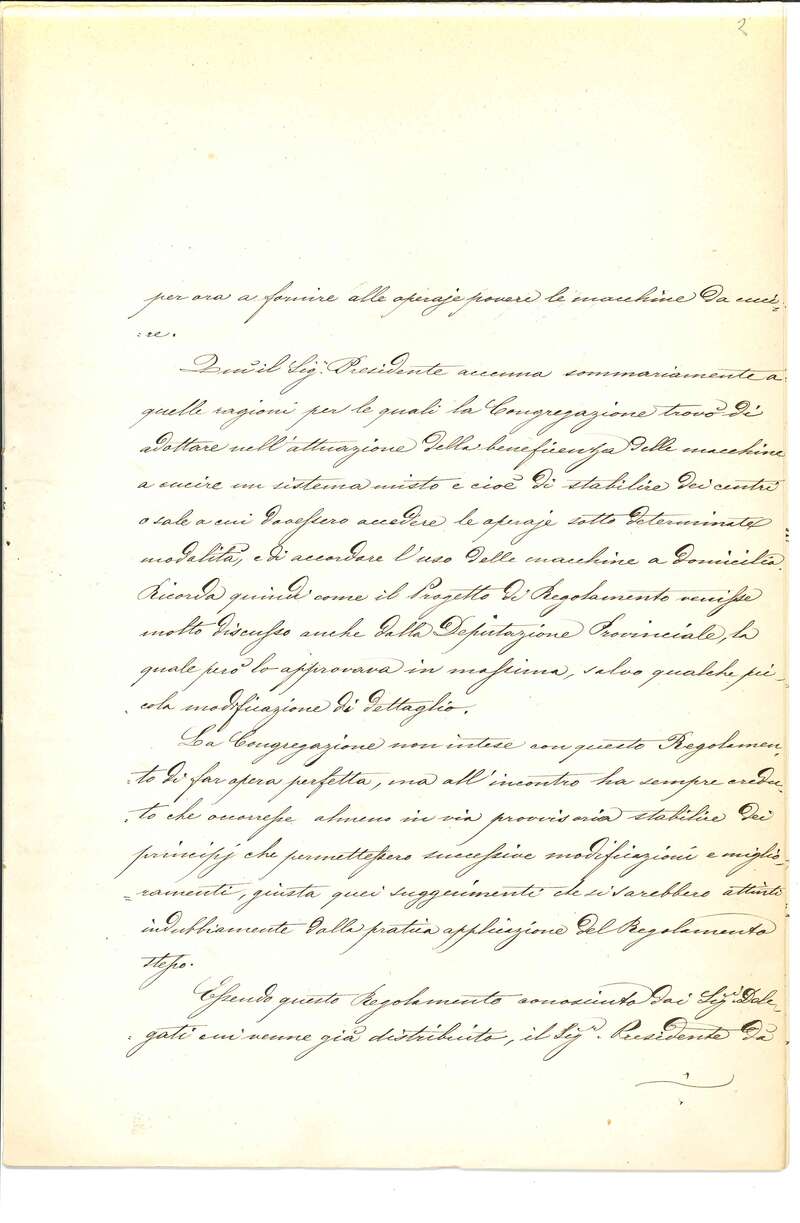 2
per ora a fornire alle operaje povere le macchine da cuci=
=re.
Qui il Sig.r Presidente accenna sommariamente a
quelle ragioni per le quali la Congregazione trovò di
adottare nell'attuazione della beneficenza delle macchine
a cucire un sistema misto e cioè di stabilire dei centri
o sale a cui dovessero accedere le operaje sotto determinate
modalità, e di accordare l'uso delle macchine a domicilio.
Ricorda quindi come il Progetto di Regolamento venisse
molto discusso anche dalla Deputazione Provinciale, la
quale però lo approvava in massima, salvo qualche pic-
cola modificazione di dettaglio.
La Congregazione non intese con questo Regolamen=
=to di far opera perfetta, ma all'incontro ha sempre credu=
=to che occorresse almeno in via provvisoria stabilire dei
principj che permettessero successive modificazioni e miglio=
=ramenti, giusta quei suggerimenti che si sarebbero attinti
indubbiamente dalla pratica applicazione del Regolamento
stesso.
Essendo questo Regolamento conosciuto dai Sig.ri Dele=
=gati cui venne già distribuito, il Sig.r Presidente dà